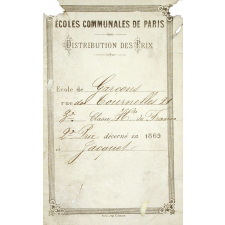 ÉCOLES COMMUNALES DE PARIS
DISTRIBUTION DES PRIX
École de Garçons
rue des Tournelles 21
2e Classe, Mr de
2e Prix décerné en 1869
à Jacquet